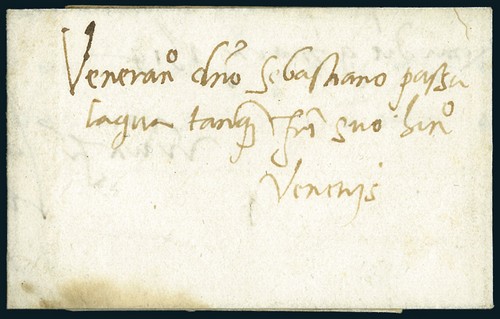 Veneran° dño Sebastiano passa
laqua tanq̃ fri suo hon°
Venetijs